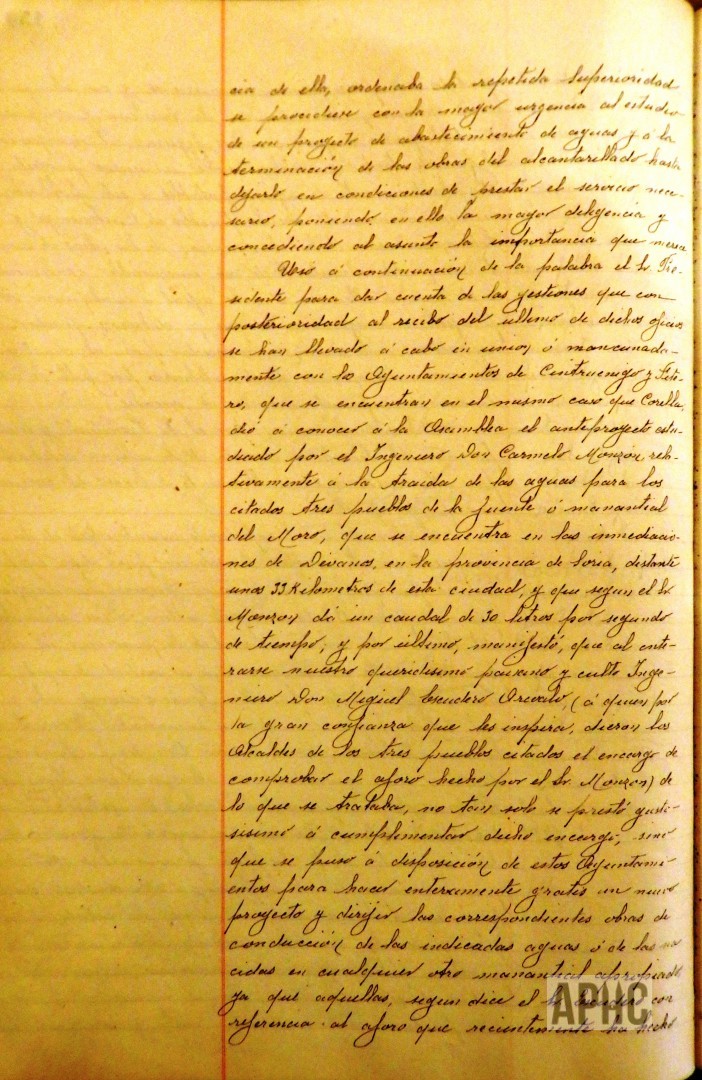 cia de ella, ordenaba la repetida Superioridad
se procediese con la mayor urgencia al estudio
de un proyecto de abastecimiento de aguas y á la
terminación de las obras del alcantarillado hasta
dejarlo en condiciones de prestar el servicio nece-
sario, poniendo en ello la mayor deligencia y
concediendo al asunto la importancia que merece
Usó á continuación de la palabra el Sr. Pre-
sidente para dar cuenta de las gestiones que con
posterioridad al recibo del último de dichos oficios
se han llevado á cabo en union ó mancunada-
mente con los Ayuntamientos de Cintruenigo y Fite-
ro, que se encuentran en el mismo caso que Corella,
dió á conocer á la Asamblea el anteproyecto estu-
diado por el Ingeniero Don Carmelo Monzón rela-
tivamente á la traida de las aguas para los
citados tres pueblos de la fuente ó manantial
del Moro, que se encuentra en las inmediacio-
nes de Devanos, en la provincia de Soria, distante
unos 33 Kilometros de esta ciudad, y que segun el Sr
Monzon dá un caudal de 30 litros por segundo
de tiempo, y por último, manifestó, que al ente-
rarse nuestro queridisimo paisano y culto Inge-
niero Don Miguel Escudero Arevalo, (á quien por
la gran confianza que les inspira, dieron los
Alcaldes de los tres pueblos citados el encargo de
comprobar el aforo hecho por el Sr. Monzon) de
lo que se trataba, no tan solo se prestó gusto-
sisimo á cumplimentar dicho encargo, sino
que se puso á disposición de estos Ayuntami-
entos para hacer enteramente gratis un nuevo
proyecto y dirijir las correspondientes obras de
conducción de las indicadas aguas ó de las na
cidas en cualquier otro manantial apropiado
ya que aquellas, segun dice el Sr Escudero con
referencia al aforo que recientemente ha hecho
APHC